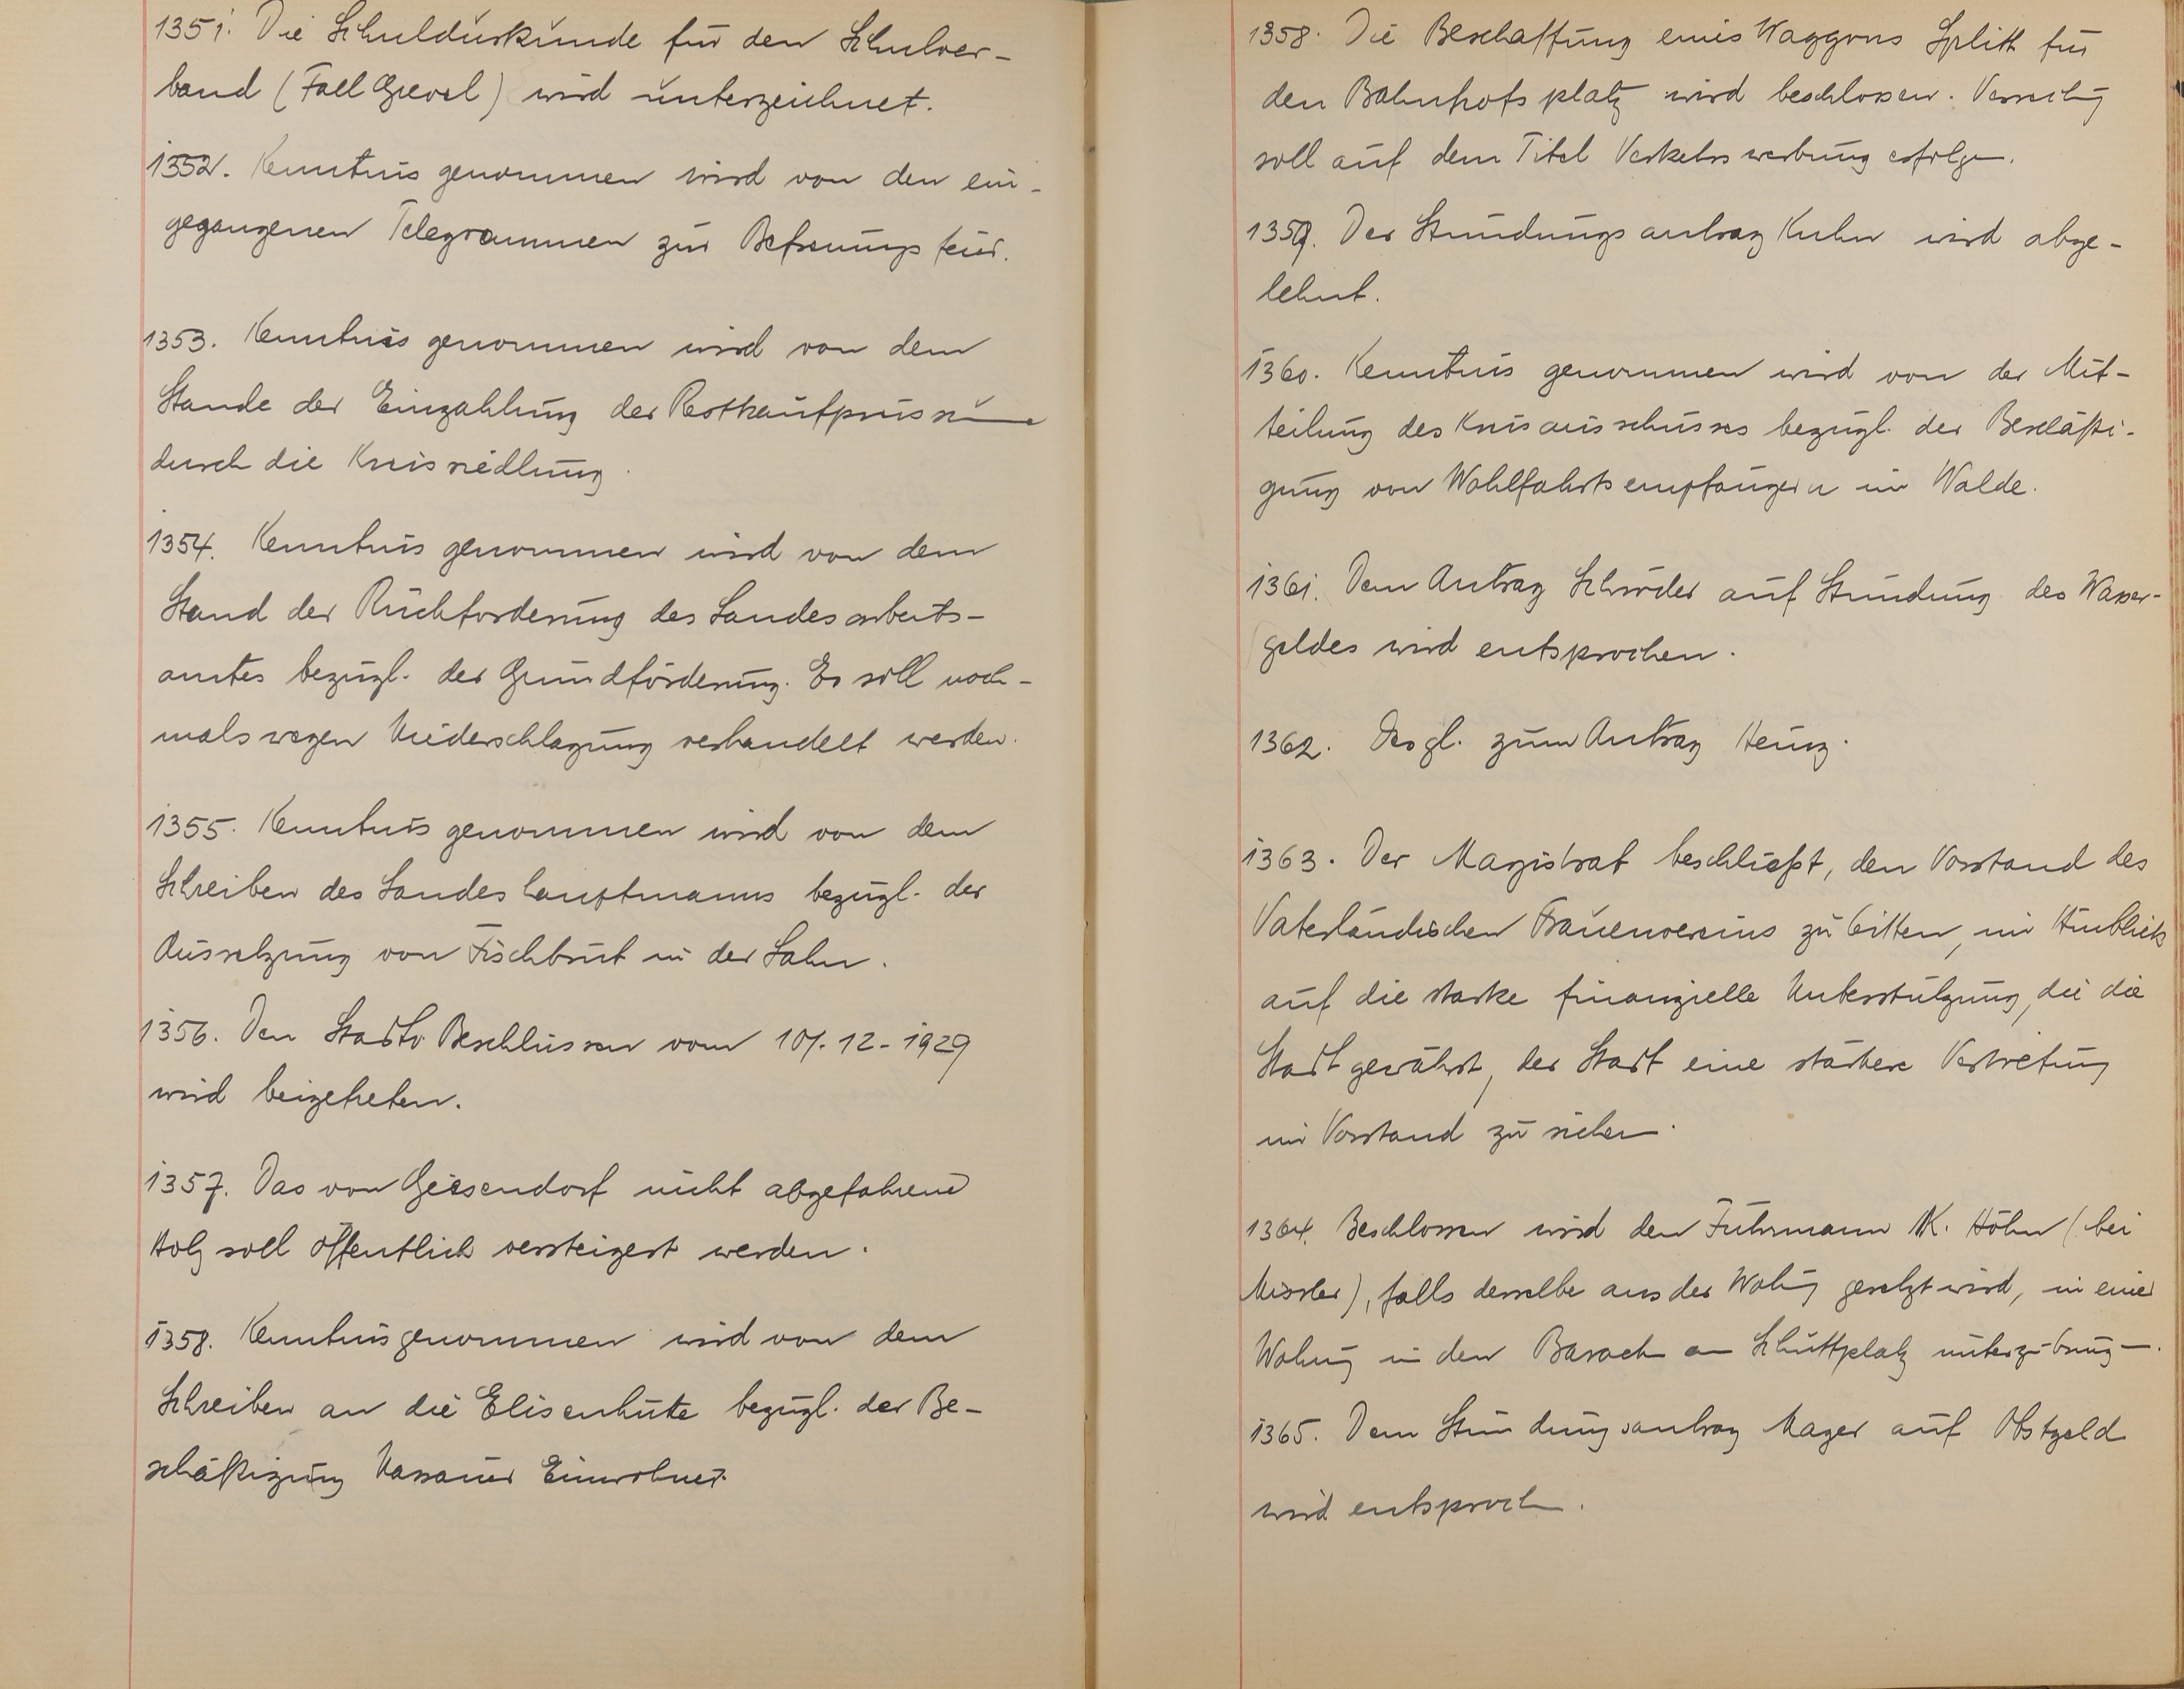 1351. Die Schuldurkunde für den Schulver-
band (Fall Grevel) wird unterzeichnet.
1352. Kenntnis genommen wird von den ein-
gegangenen Telegrammen zur Befreiungsfeier.
1353. Kenntnis genommen wird von dem
Stande der Einzahlung der Restkaufpreis
durch die Kreissiedlung.
1354. Kenntnis genommen wird von dem
Stand der Rückforderung des Landesarbeits-
amtes bezügl. der Grundförderung. Es soll noch-
mals wegen Niederschlagung verhandelt werden.
1355. Kenntnis genommen wird von dem
Schreiben des Landeshauptmanns bezügl. der
Aussetzung von Fischbrut in der Lahn.
1356. Den Stadtv. Beschlüssen vom 10/.12.1929
wird beigetreten.
1357. Das von Geisendorf nicht abgefahrene
Holz soll öffentlich versteigert werden.
1358. Kenntnis genommen wird von dem
Schreiben an die Elisenhütte bezügl. der Be-
schäftigung Nassauer Einwohner.
1358. Die Beschaffung eines Waggons Splitt für
den Bahnhofsplatz wird beschlossen. Verrechng
soll auf dem Titel Verkehrswerbung erfolgen.
1359. Der Stundungsantrag Kuhn wird abge-
lehnt.
1360. Kenntnis genommen wird von der Mit-
teilung des Kreisausschusses bezügl. der Beschäfti-
gung von Wohlfahrtsempfängern im Walde.
1361. Dem Antrag Schröder auf Stundung des Wasser-
geldes wird entsprochen.
1362. Desgl. zum Antrag Heinz.
1363. Der Magistrat beschließt, den Vorstand des
Vaterländischen Frauenvereins zu bitten, im Hinblick
auf die starke finanzielle Unterstützung, die die
Stadt gewährt, der Stadt eine stärkere Vertretung
im Vorstand zu sichern.
1364. Beschlossen wird den Fuhrmann K. Höhn (bei
Missler), falls derselbe aus der Wohng gesetzt wird, in einer
Wohng in den Baracken am Schuttplatz unterzubringen.
1365. Dem Stundungsantrag Mager auf Obstgeld
wird entsprochen.